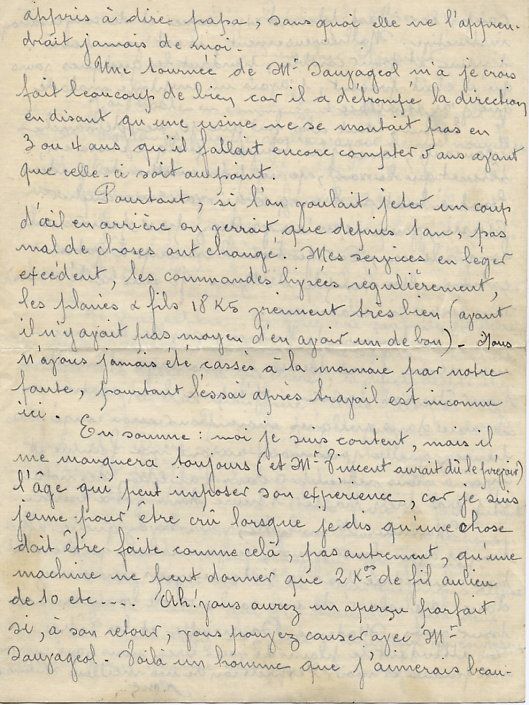 appris à dire papa, sans quoi elle ne l'appren-
drait jamais de moi.
Une tournée de Mr Sauvageol m'a je crois
fait beaucoup de bien, car il a détrompé la direction
en disant qu'une usine ne se montait pas en
3 ou 4 ans, qu'il fallait encore compter 5 ans avant
que celle-ci soit au point.
Pourtant, si l'on voulait jeter un coup
d'œil en arrière on verrait que depuis 1 an, pas
mal de choses ont changé. Mes services en léger
excédent, les commandes livrées régulièrement,
les planés & fils 18 K5 viennent très bien (avant
il n'y avait pas moyen d'en avoir un de bon) - Nous
n'avons jamais été cassés à la monnaie par notre
faute, pourtant l'essai après travail est inconnu
ici.
En somme : moi je suis content, mais il
me manquera toujours (et Mr Vincent aurait dû le prévoir)
l'âge qui peut imposer son expérience, car je suis
jeune pour être crû lorsque je dis qu'une chose
doit être faite comme celà, pas autrement, qu'une
machine ne peut donner que 2 Kos de fil aulieu
de 10 etc.... Ah! vous aurez un aperçu parfait
si, à son retour, vous pouvez causer avec Mr
Sauvageol. Voilà un homme que j'aimerais beau-